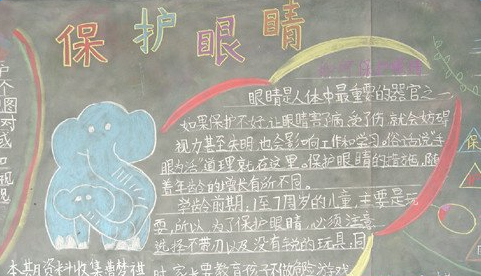 保护眼睛
眼睛是人体中最重要的器官之一
如果保护不好,让眼睛害了病,受了伤,就会妨碍
视力甚至失明,也会影响工作和学习。俗话说:手
眼为活,道理就在这里。保护眼睛的措施,随
着年龄的增长有所不同。
学龄前期,1至7周岁的儿童,主要是玩
耍,所以,为了保护眼睛,必须注意
选择不带刃以及没有锐的玩具,同
时,家长要教育孩子不做危险游戏
本期资料收集
护
个
图
对
或
和
视
保